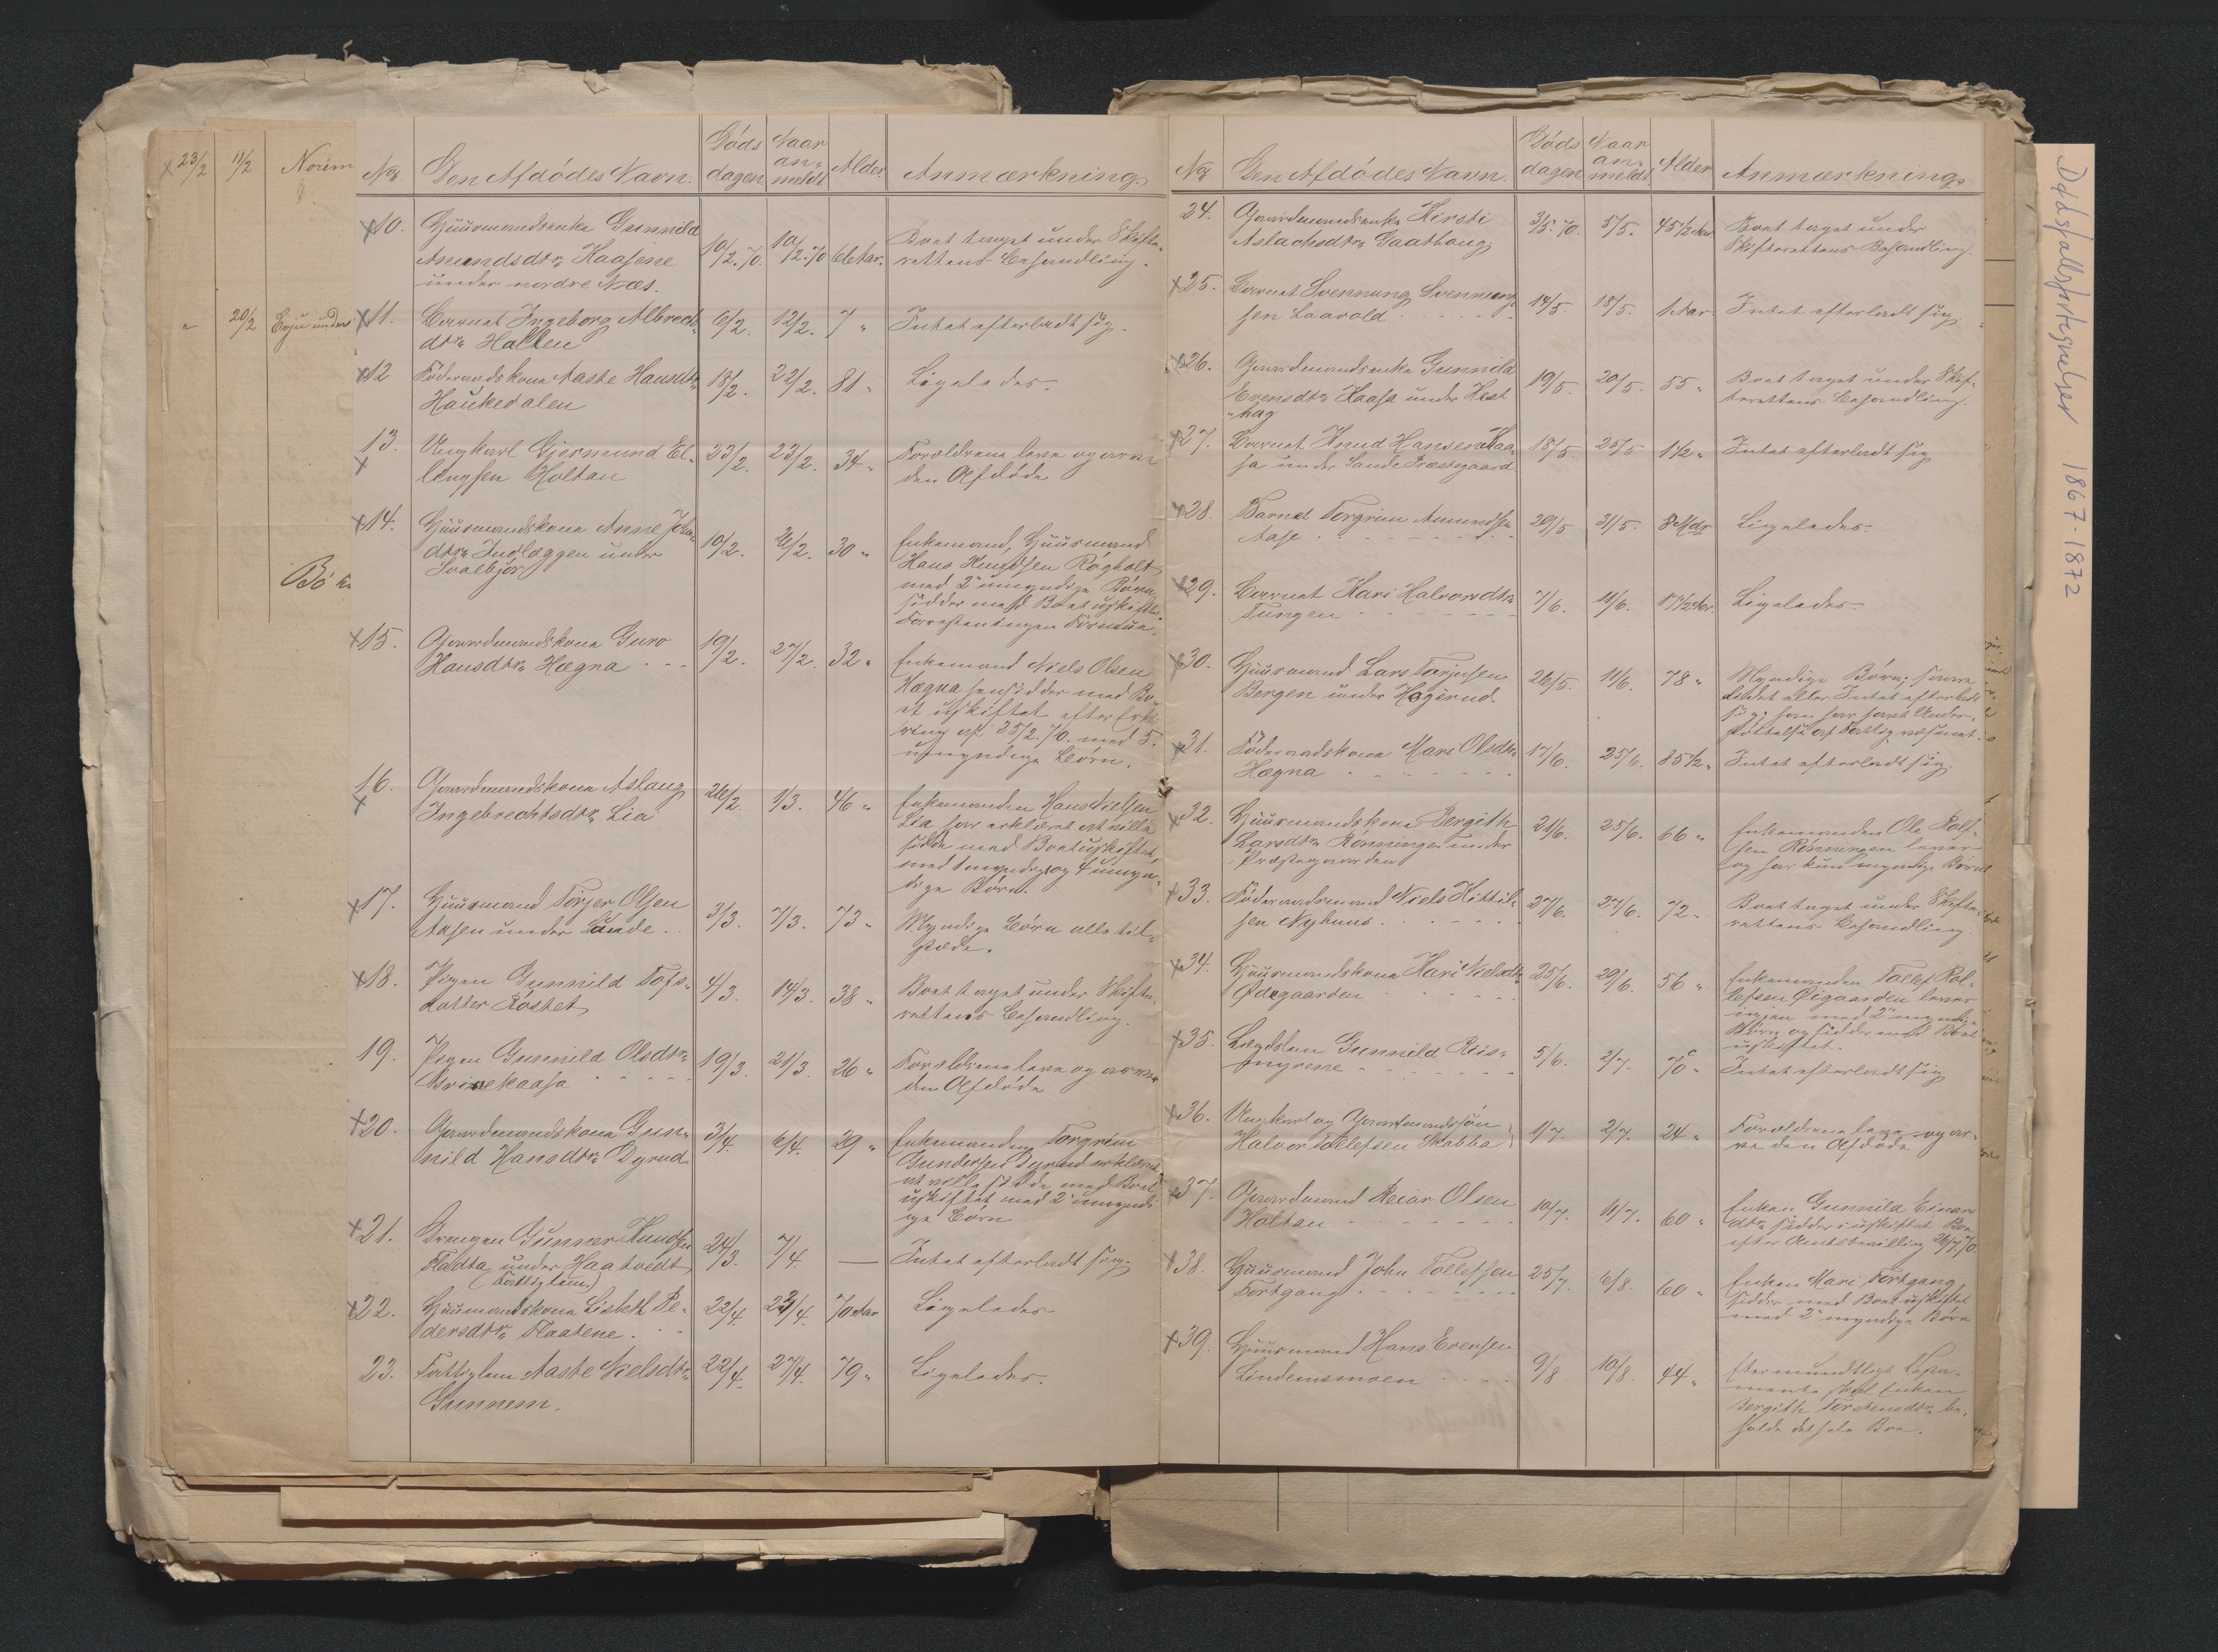 x 23/2 11/2 Norem
" 20/2 Eeju under
Bö
No. Den Afdödes Navn. Döds dagen Naar an- meldt Alder. Anmærkning.
x10. Huusmandsenke Gunnild
Amundsdtr. Haasene
under nordre Næs.
10/2.70. 10/2.70 66 Aar.
Boet taget under Skifte-
rettens Behandling.
x11. Barnet Ingeborg Albrechts-
dtr. Hallen
6/2. 12/2. 7 "
Intet efterladt sig.
x12 Föderaadskone Aaste Hansdtr.
Haukedalen
18/2. 22/2. 81 "
Ligeledes.
13. x Ungkarl Gjermund El-
lingsen Holtan
23/2. 23/2. 34 "
Forældrene leve og arve
den Afdöde
x14. Huusmandskone Anne Johns-
dtr. Indlæggen under
Svalbjör
10/2. 26/2. 30 "
Enkemand, Huusmand
Hans Knudsen Rögholt
med 2 umyndige Börn
sidder med Boet uskiftet
x15. Gaardmandskone Guro
Hansdtr. Hægna
19/2. 27/2. 32 "
Enkemand Niels Olsen
Hægna hensidder med Bo-
et uskiftet efter Erklæ-
ring af 25/2.70. med 5
umyndige Börn.
16. x Gaardmandskone Aslaug
Ingebrechtsdtr. Lia
26/2. 1/3. 46 "
Enkemanden Hans Nielsen
Lia har erklæret at ville
sidde med Boet uskiftet,
med 1 myndig og 4 umyn-
dige Börn.
x17. Huusmand Torjer Olsen
Aasen under Sande
3/3. 7/3. 73 "
Myndige Börn alle til-
stede.
x18. Pigen Gunnild Tofs-
datter Rostet
4/3. 14/3. 38 "
Boet taget under Skifte-
rettens Behandling.
19. Pigen Gunnild Olsdtr.
Brinekaasa
19/3. 21/3. 26 "
Forældrene leve og arve
den Afdöde
x20. Gaardmandskone Gun-
nild Hansdtr. Dyrud
3/4. 6/4. 29 "
Enkemanden Torgrim
Gundersen Dyrud erklæret
at ville sidde med Boet
uskiftet med 2 umyndi-
ge Börn
x21. Drengen Gunner Knudsen
Fladta under Haatvedt
(Fattiglem)
24/3. 7/4 —
Intet efterladt sig.
x22. Huusmandskone Lisbeth Pe-
dersdtr. Flaatene.
22/4. 23/4. 70 Aar
Ligeledes
23. Fattiglem Aaste Nielsdtr.
Gunnem.
22/4. 27/4. 79 "
Ligeledes.
No. Den Afdödes Navn. Döds dagen Naar an- meldt. Alder Anmærkning.
24. Gaardmandsenke Kirsti
Aslachsdtr. Gaathaug
3/5.70. 5/5. 45 1/2 Aar
Boet taget under
Skifterettens Behandling.
x25. Barnet Svennung Svennung-
sen Laavold
14/5 18/5. 1 Aar.
Intet efterladt sig
x26. Gaardmandsenke Gunnild
Evensdtr. Kaasa under Hest
hag
19/5. 20/5. 55 "
Boet taget under Skif-
terettens Behandling.
x27. Barnet Knud Hansen Kaa-
sa under Sande Præstegaard
18/5. 25/5 1 1/2 "
Intet efterladt sig
x28. Barnet Torgrim Amundsen
Aase
20/5 31/5 8 Mdr
Ligeledes.
x29. Barnet Kari Halvorsdtr.
Tungen
7/6. 11/6.
Ligeledes
x30. Huusmand Lars Torjusen
Bergen under Hogerud.
26/5. 11/6. 78 "
Myndige Börn;
Intet efterladt
sig; han har havt Under-
støttelse af Fattigvæsenet.
x31. Föderaadskone Mari Olsdtr.
Hægna
17/6. 25/6. 85 1/2 "
Intet efterladt sig.
x32. Huusmandskone Bergith
Larsdtr. Rönningen under
Præstegaarden
21/6. 25/6. 66 "
Enkemanden Ole Rolf-
sen Rönningen lever
og har kun myndige Börn
x33. Föderaadsmand Niels Kittil-
sen Nyhuus
27/6. 27/6. 72 "
Boet taget under Skifte-
rettens Behandling.
x34. Huusmandskone Kari Nielsdtr.
Ödegaarden
25/6. 29/6. 56 "
Enkemanden Tollef Rol-
lefsen Öigaarden lever
igjen med 2 myndige
Börn og sidder med Boet
uskiftet.
x35. Lægdslem Gunnild Reis-
myrene
5/6. 2/7. 70 "
Intet efterladt sig
x36. Ungkarl og Gaardmandssön
Halvor Tollefsen Skabba
1/7. 2/7. 24 "
Forældrene leve og ar-
ve den Afdöde
x37. Gaardmand Reiar Olsen
Holtan
10/7. 11/7. 60 "
Enken Gunnild Einar
dtr. sidder i uskiftet Bo
efter Amtsbevilling 26/7.70
x38. Huusmand John Tollefsen
Tortgang
25/7. 6/8. 60 "
Enken Mari Tortgang
sidder med Boet uskiftet
med 2 myndige Börn
x39. Huusmand Hans Evensen
Lindemsmoen
9/8 10/8. 44 "
Efter mundtligt Testa-
mente skal Enken
Bergith Torstensdtr. be-
holde det hele Bo.
Dödsfallsfortegnelser 1867-1872